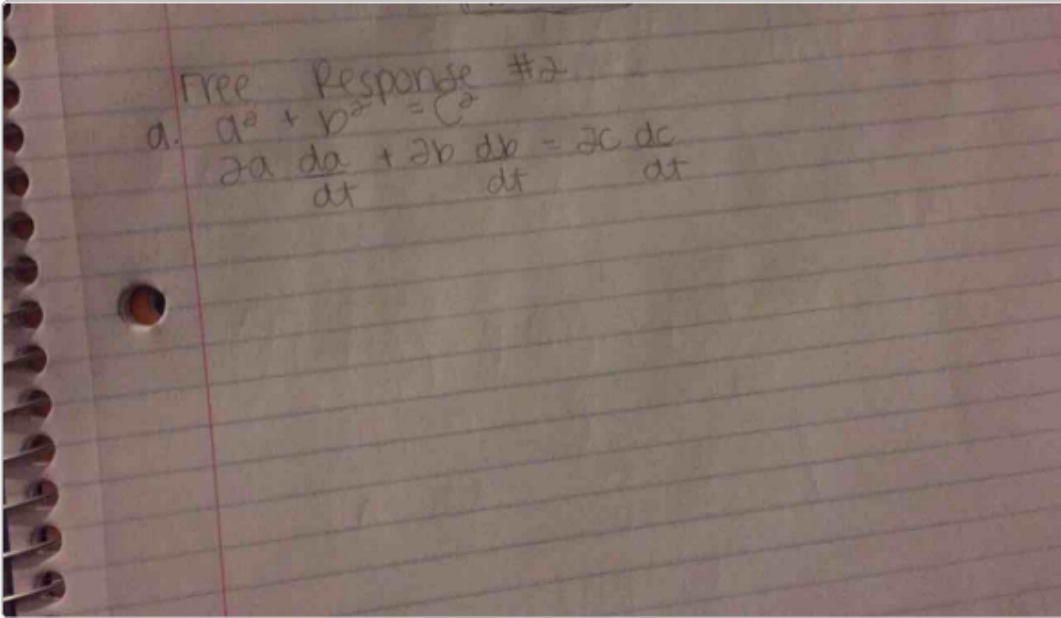 Free Response #2
a. a² + b² = c²
2a da/dt + 2b db/dt = 2c dc/dt